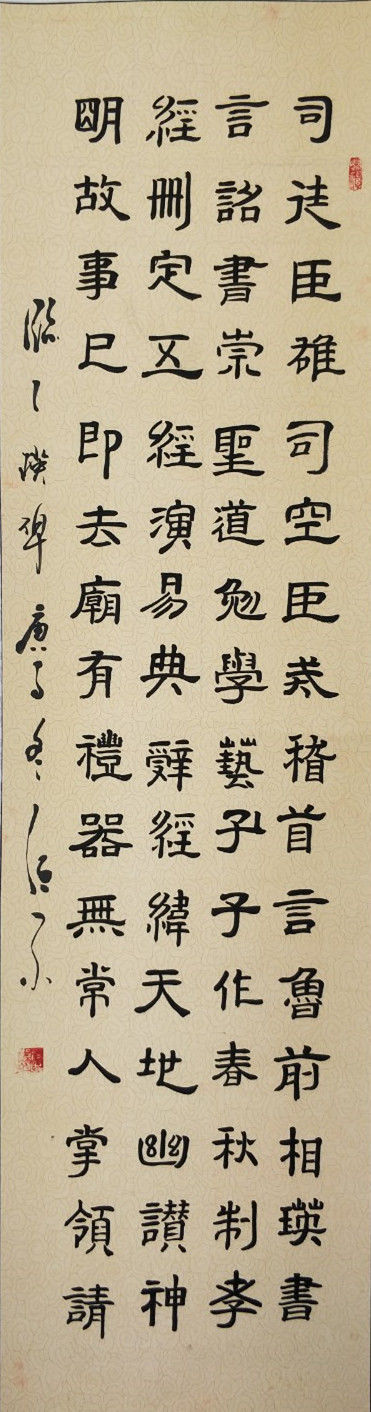 司徒臣雄司空臣戒稽首言魯前相瑛書
言詔書崇聖道勉學藝孔子作春秋制孝
經刪定五經演易典辭經緯天地幽讃神
明故事已即去廟有禮器無常人掌領請
臨乙瑛碑庚子冬